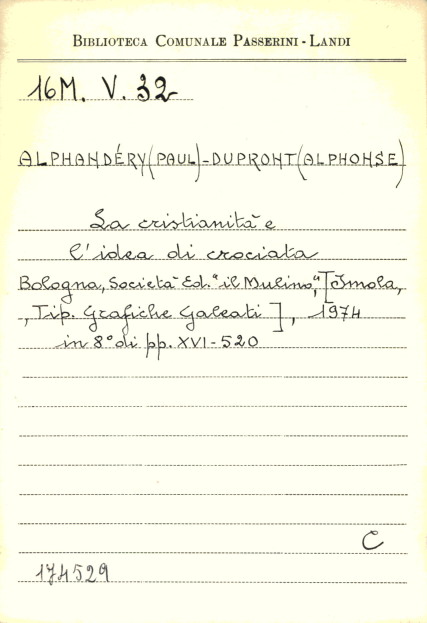 BIBLIOTECA COMUNALE PASSERINI - LANDI
16M. V. 32
ALPHANDÉRY (PAUL) - DUPRONT (ALPHONSE)
La cristianità e
l'idea di crociata
Bologna, Società Ed. "il Mulino", [Imola,
, Tip. Grafiche Galeati ] , 1974
in 8° di pp. XVI-520
C
174529